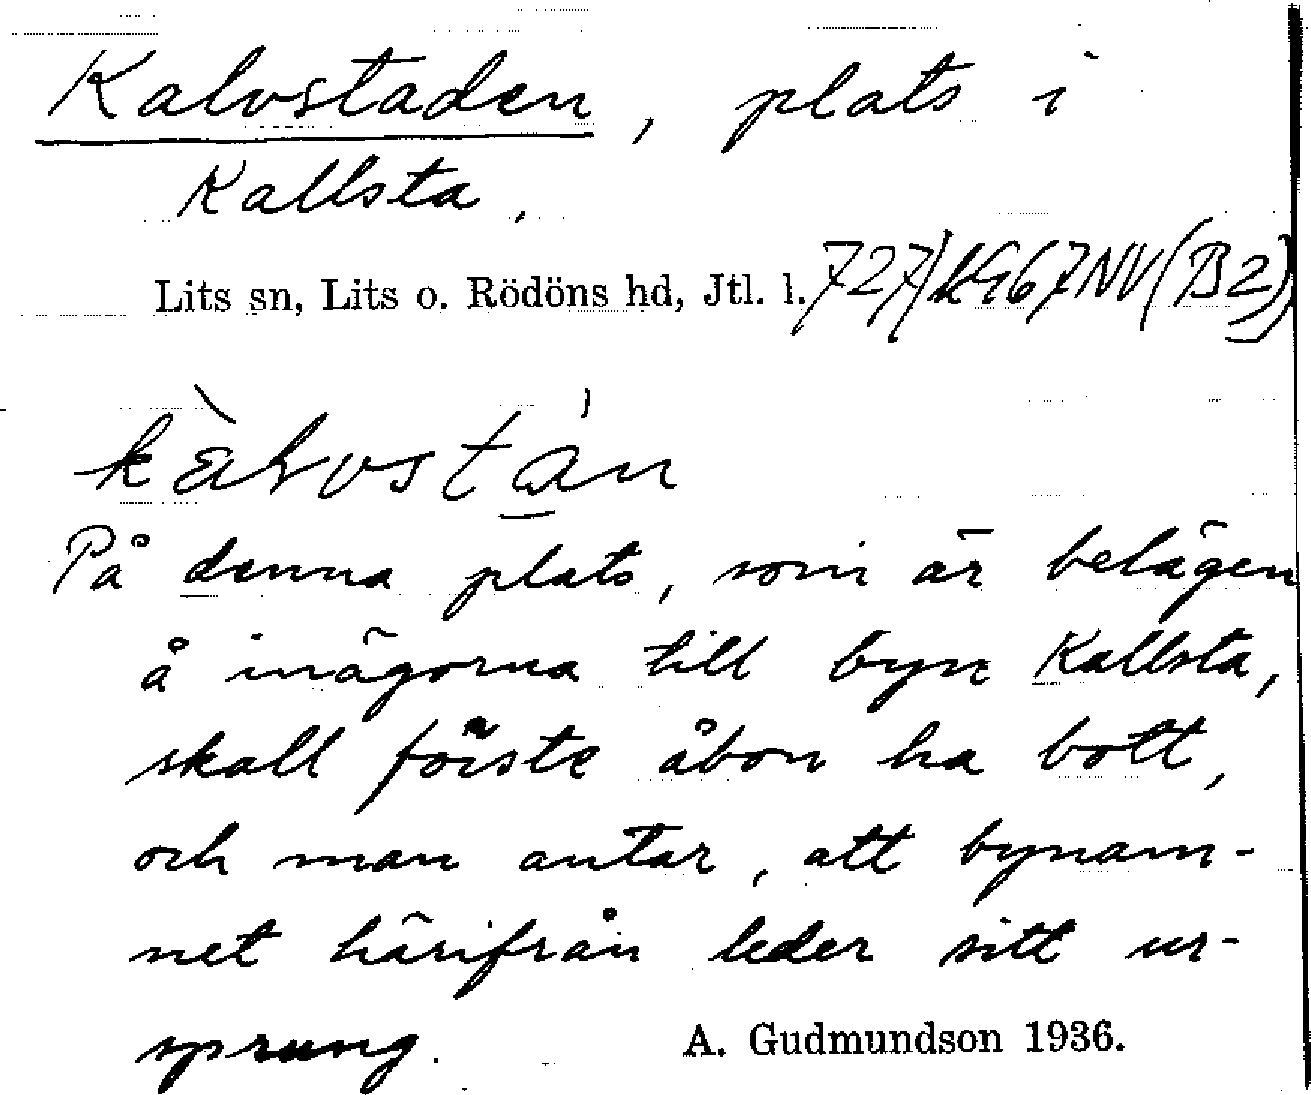 Kalvstaden, plats i
Kallsta.
Lits sn, Lits o. Rödöns hd, Jtl. l.
På denna plats, som är belägen
å inägorna till byn Kallsta,
skall förste åbon ha bott,
och man antar, att bynam-
net härifrån leder sitt ur-
sprung.
A. Gudmundson 1936.